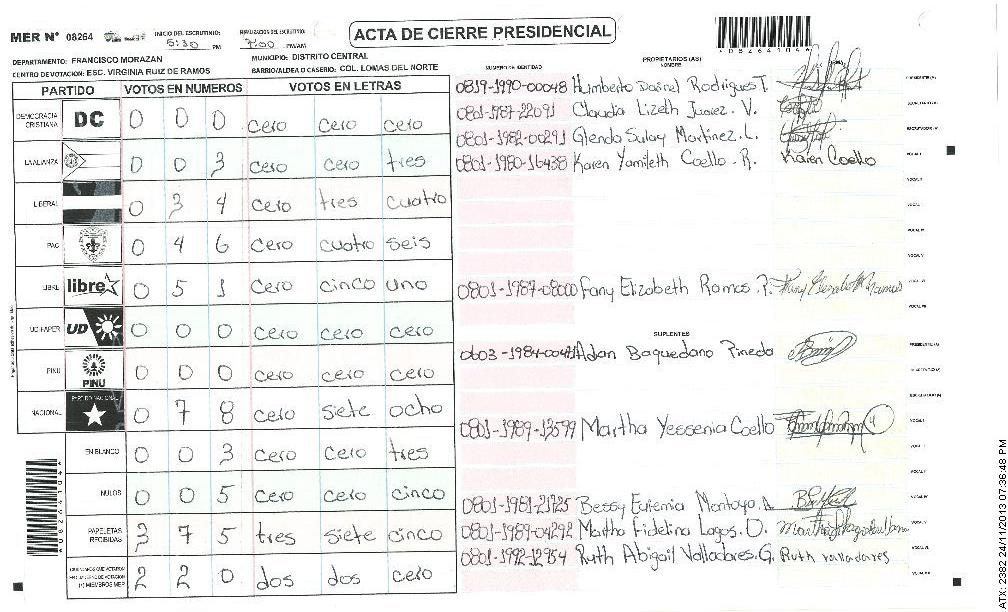 MER N° 08264
INICIO DEL ESCRUTINIO: 5:30 PM
FINALIZACION DEL ESCRUTINIO: 7:00 PM/AM
ACTA DE CIERRE PRESIDENCIAL
*08264104*
DEPARTAMENTO: FRANCISCO MORAZAN
MUNICIPIO: DISTRITO CENTRAL
CENTRO DE VOTACION: ESC. VIRGINIA RUIZ DE RAMOS
BARRIO/ALDEA O CASERIO: COL. LOMAS DEL NORTE
PARTIDO VOTOS EN NUMEROS VOTOS EN LETRAS
DEMOCRACIA CRISTIANA DC 0 0 0 cero cero cero
LA ALIANZA 0 0 3 cero cero tres
LIBERAL 0 3 4 cero tres cuatro
PAC 0 4 6 cero cuatro seis
LIBRE libre 0 5 1 cero cinco uno
UD-FAPER UD 0 0 0 cero cero cero
PINU PINU 0 0 0 cero cero cero
NACIONAL PARTIDO NACIONAL 0 7 8 cero siete ocho
EN BLANCO 0 0 3 cero cero tres
NULOS 0 0 5 cero cero cinco
PAPELETAS RECIBIDAS 3 7 5 tres siete cinco
CIUDADANOS QUE VOTARON EN CUADERNO DE VOTACION (+) MIEMBROS MER 2 2 0 dos dos cero
*08264104*
NUMERO DE IDENTIDAD
PROPIETARIOS (AS)
NOMBRE
0819-1990-00048 Humberto Daniel Rodrigues T. PRESIDENTE (A)
0801-1987-22091 Claudia Lizeth Juarez. V. SECRETARIO (A)
0801-1982-00291 Glenda Sulay Martinez. L. ESCRUTADOR (A)
0801-1980-16438 Karen Yamileth Coello. R. Karen Coello VOCAL I
VOCAL II
VOCAL III
VOCAL IV
VOCAL V
0801-1987-08000 Fany Elizabeth Ramos. P. VOCAL VI
VOCAL VII
SUPLENTES
Adan Baquedano Pineda PRESIDENTE (A)
SECRETARIO (A)
ESCRUTADOR (A)
0801-1989-13599 Martha Yessenia Coello VOCAL I
VOCAL II
VOCAL III
0801-1981-21725 Bessy Eufemia Montoya. A VOCAL IV
0801-1989-04292 Martha Fidelina Lagos. O. VOCAL V
0801-1992-12954 Ruth Abigail Valladares. G. Ruth valladares VOCAL VI
VOCAL VII
ATX: 2382 24/11/2013 07:36:48 PM